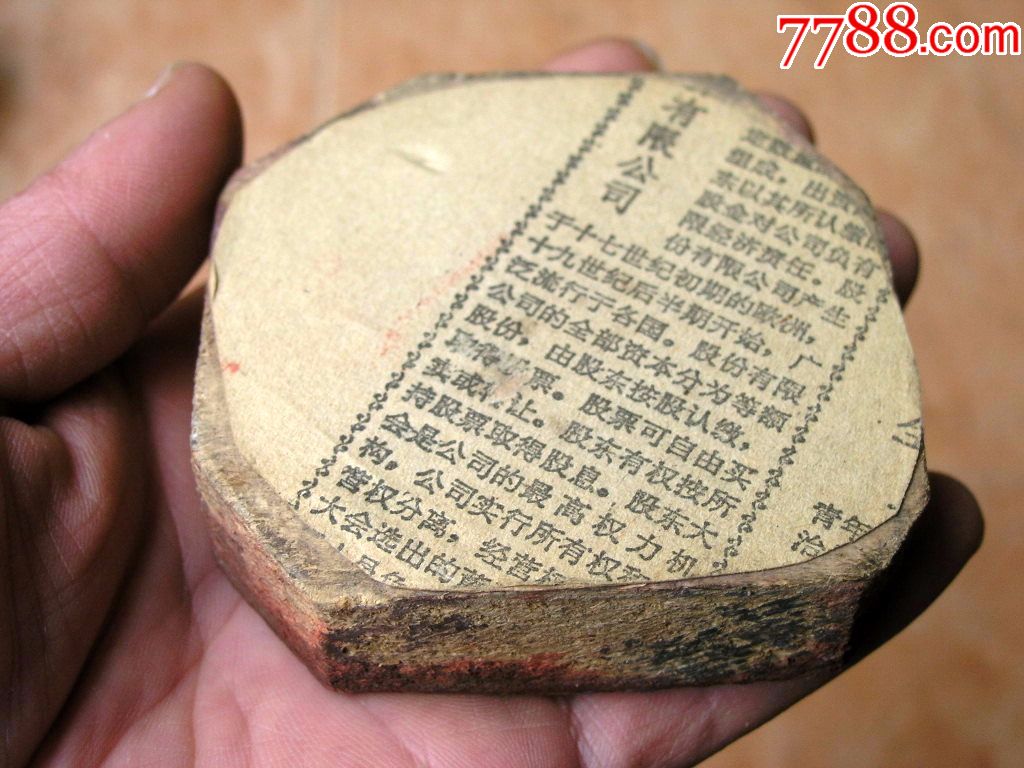 7788.com
有限公司
组成，出资
东以其所认缴
股金对公司负有
限经济责任。股
份有限公司产生
于十七世纪初期的欧洲，
十九世纪后半期开始，广
泛流行于各国。股份有限
公司的全部资本分为等额
股份，由股东按股认缴，
票。股票可自由买
卖或 让。股东有权按所
持股票取得股息。股东大
会是公司的最高权力机
构，公司实行所有权
营权分离，经营
大会选出的
青年
治